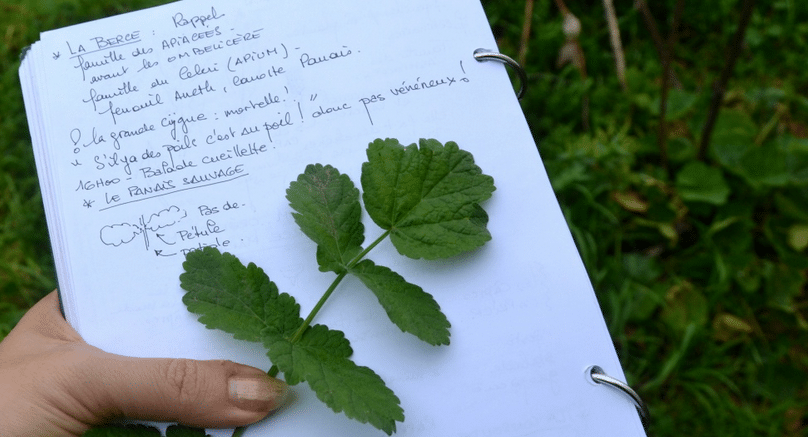 * LA BERCE : Rappel
famille des APIACEES.
avant les OMBELICÈRE
famille du Celeri (APIUM).
fenouil Aneth, carotte Panais.
la grande cigüe : mortelle !
"S'il y a des poils c'est au poil !" donc pas vénéneux !
16H00 = Balade cueillette.
* LE PANAIS SAUVAGE
Pas de.
Pétule